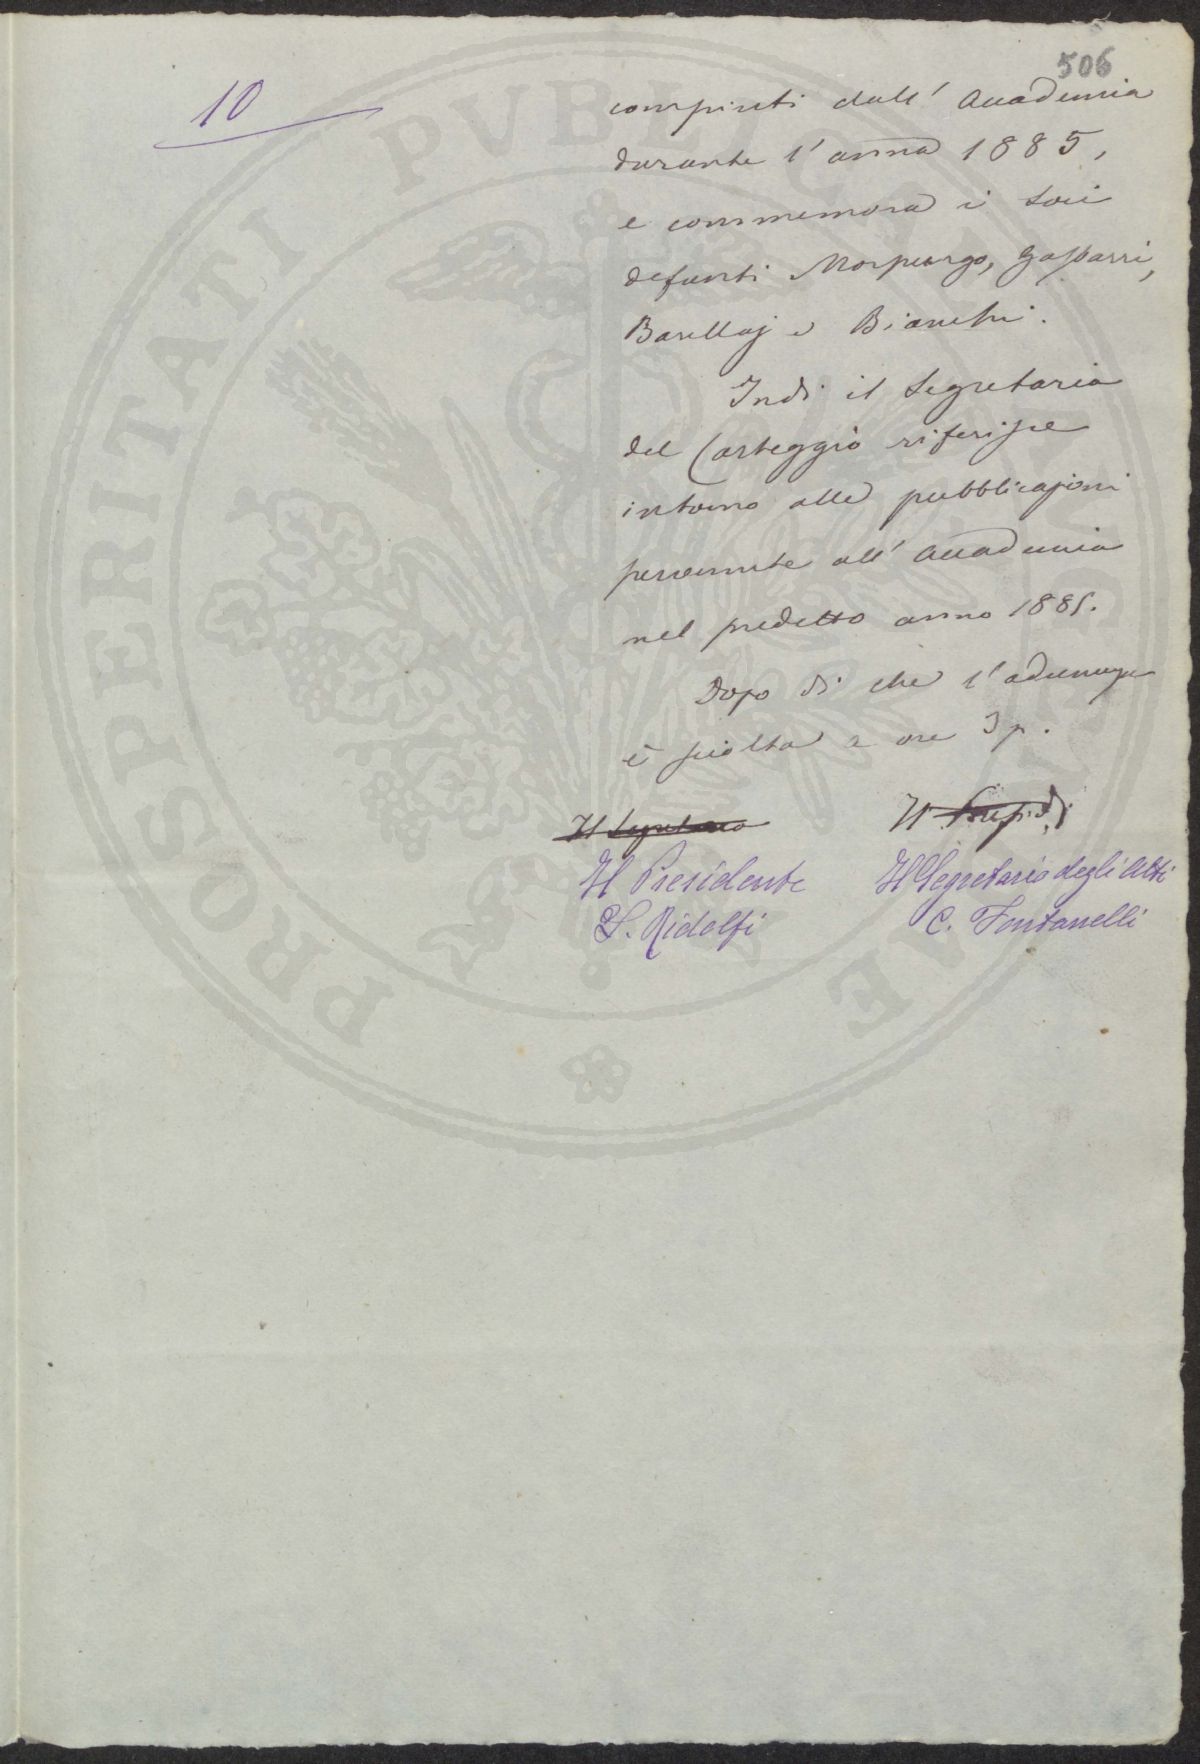 506
10
compiuti dall' Accademia
durante l'anno 1885,
e commemora i Soci
defunti Morpurgo, Gasparri,
Barellaj e Bianchi.
Indi il Segretario
del Carteggio riferisce
intorno alle pubblicazioni
pervenute all' Accademia
nel predetto anno 1885.
Dopo di che l'adunanza
è sciolta a ore 3 p.
Il Segretario Il Presid.
Il Presidente Il Segretario degli Atti
L. Ridolfi C. Fontanelli
PROSPERITATI PVBLICAE